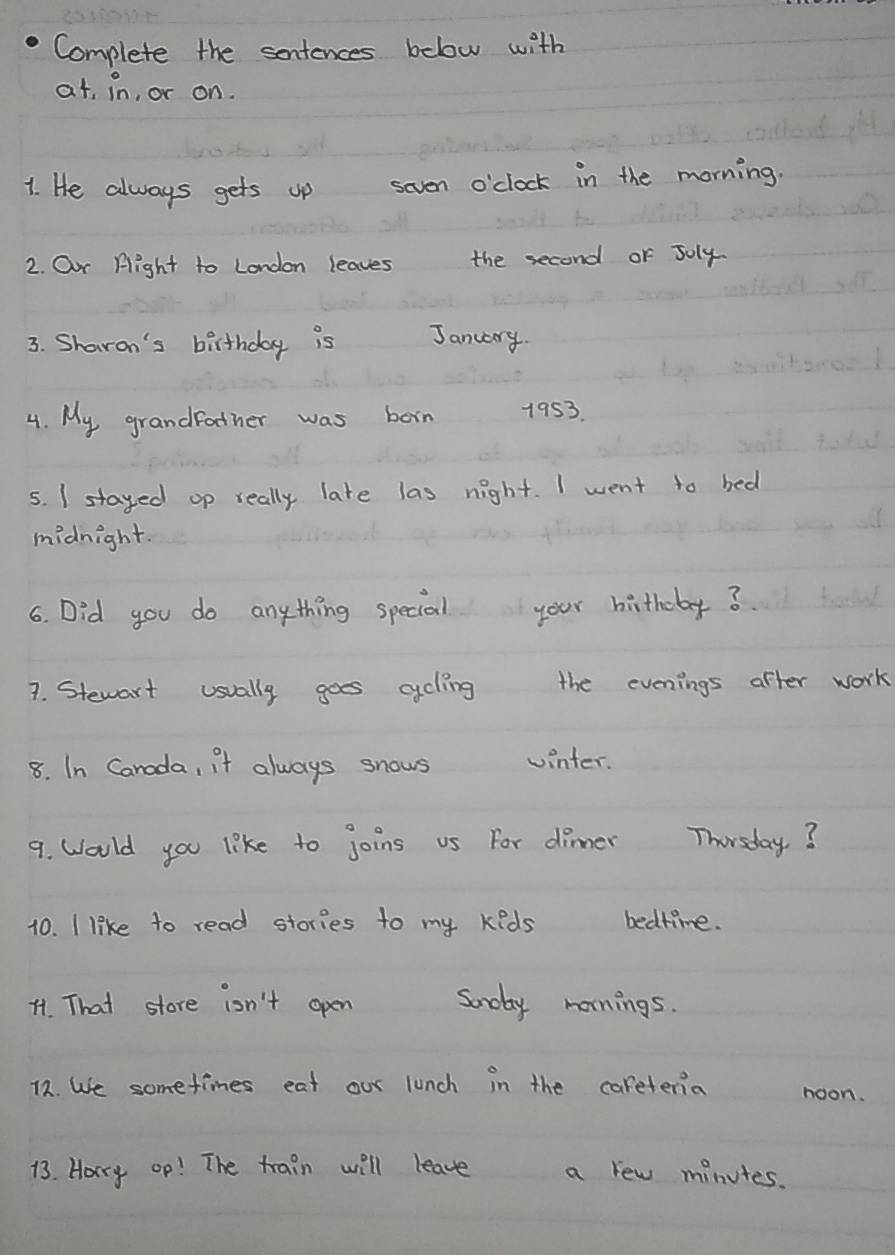 • Complete the sentences below with
at, in, or on.
1. He always gets up seven o'clock in the morning.
2. Our flight to London leaves the second of July.
3. Sharon's birthday is January.
4. My grandfather was born 1953.
5. I stayed up really late las night. I went to bed
midnight.
6. Did you do anything special your birthday?
7. Stewart usually goes cycling the evenings after work
8. In Canada, it always snows winter.
9. Would you like to joins us for dinner Thursday?
10. I like to read stories to my kids bedtime.
11. That store isn't open Sunday mornings.
12. We sometimes eat our lunch in the cafeteria noon.
13. Hurry up! The train will leave a few minutes.